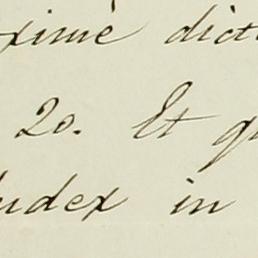 ximè dict
20. Et q
udex in